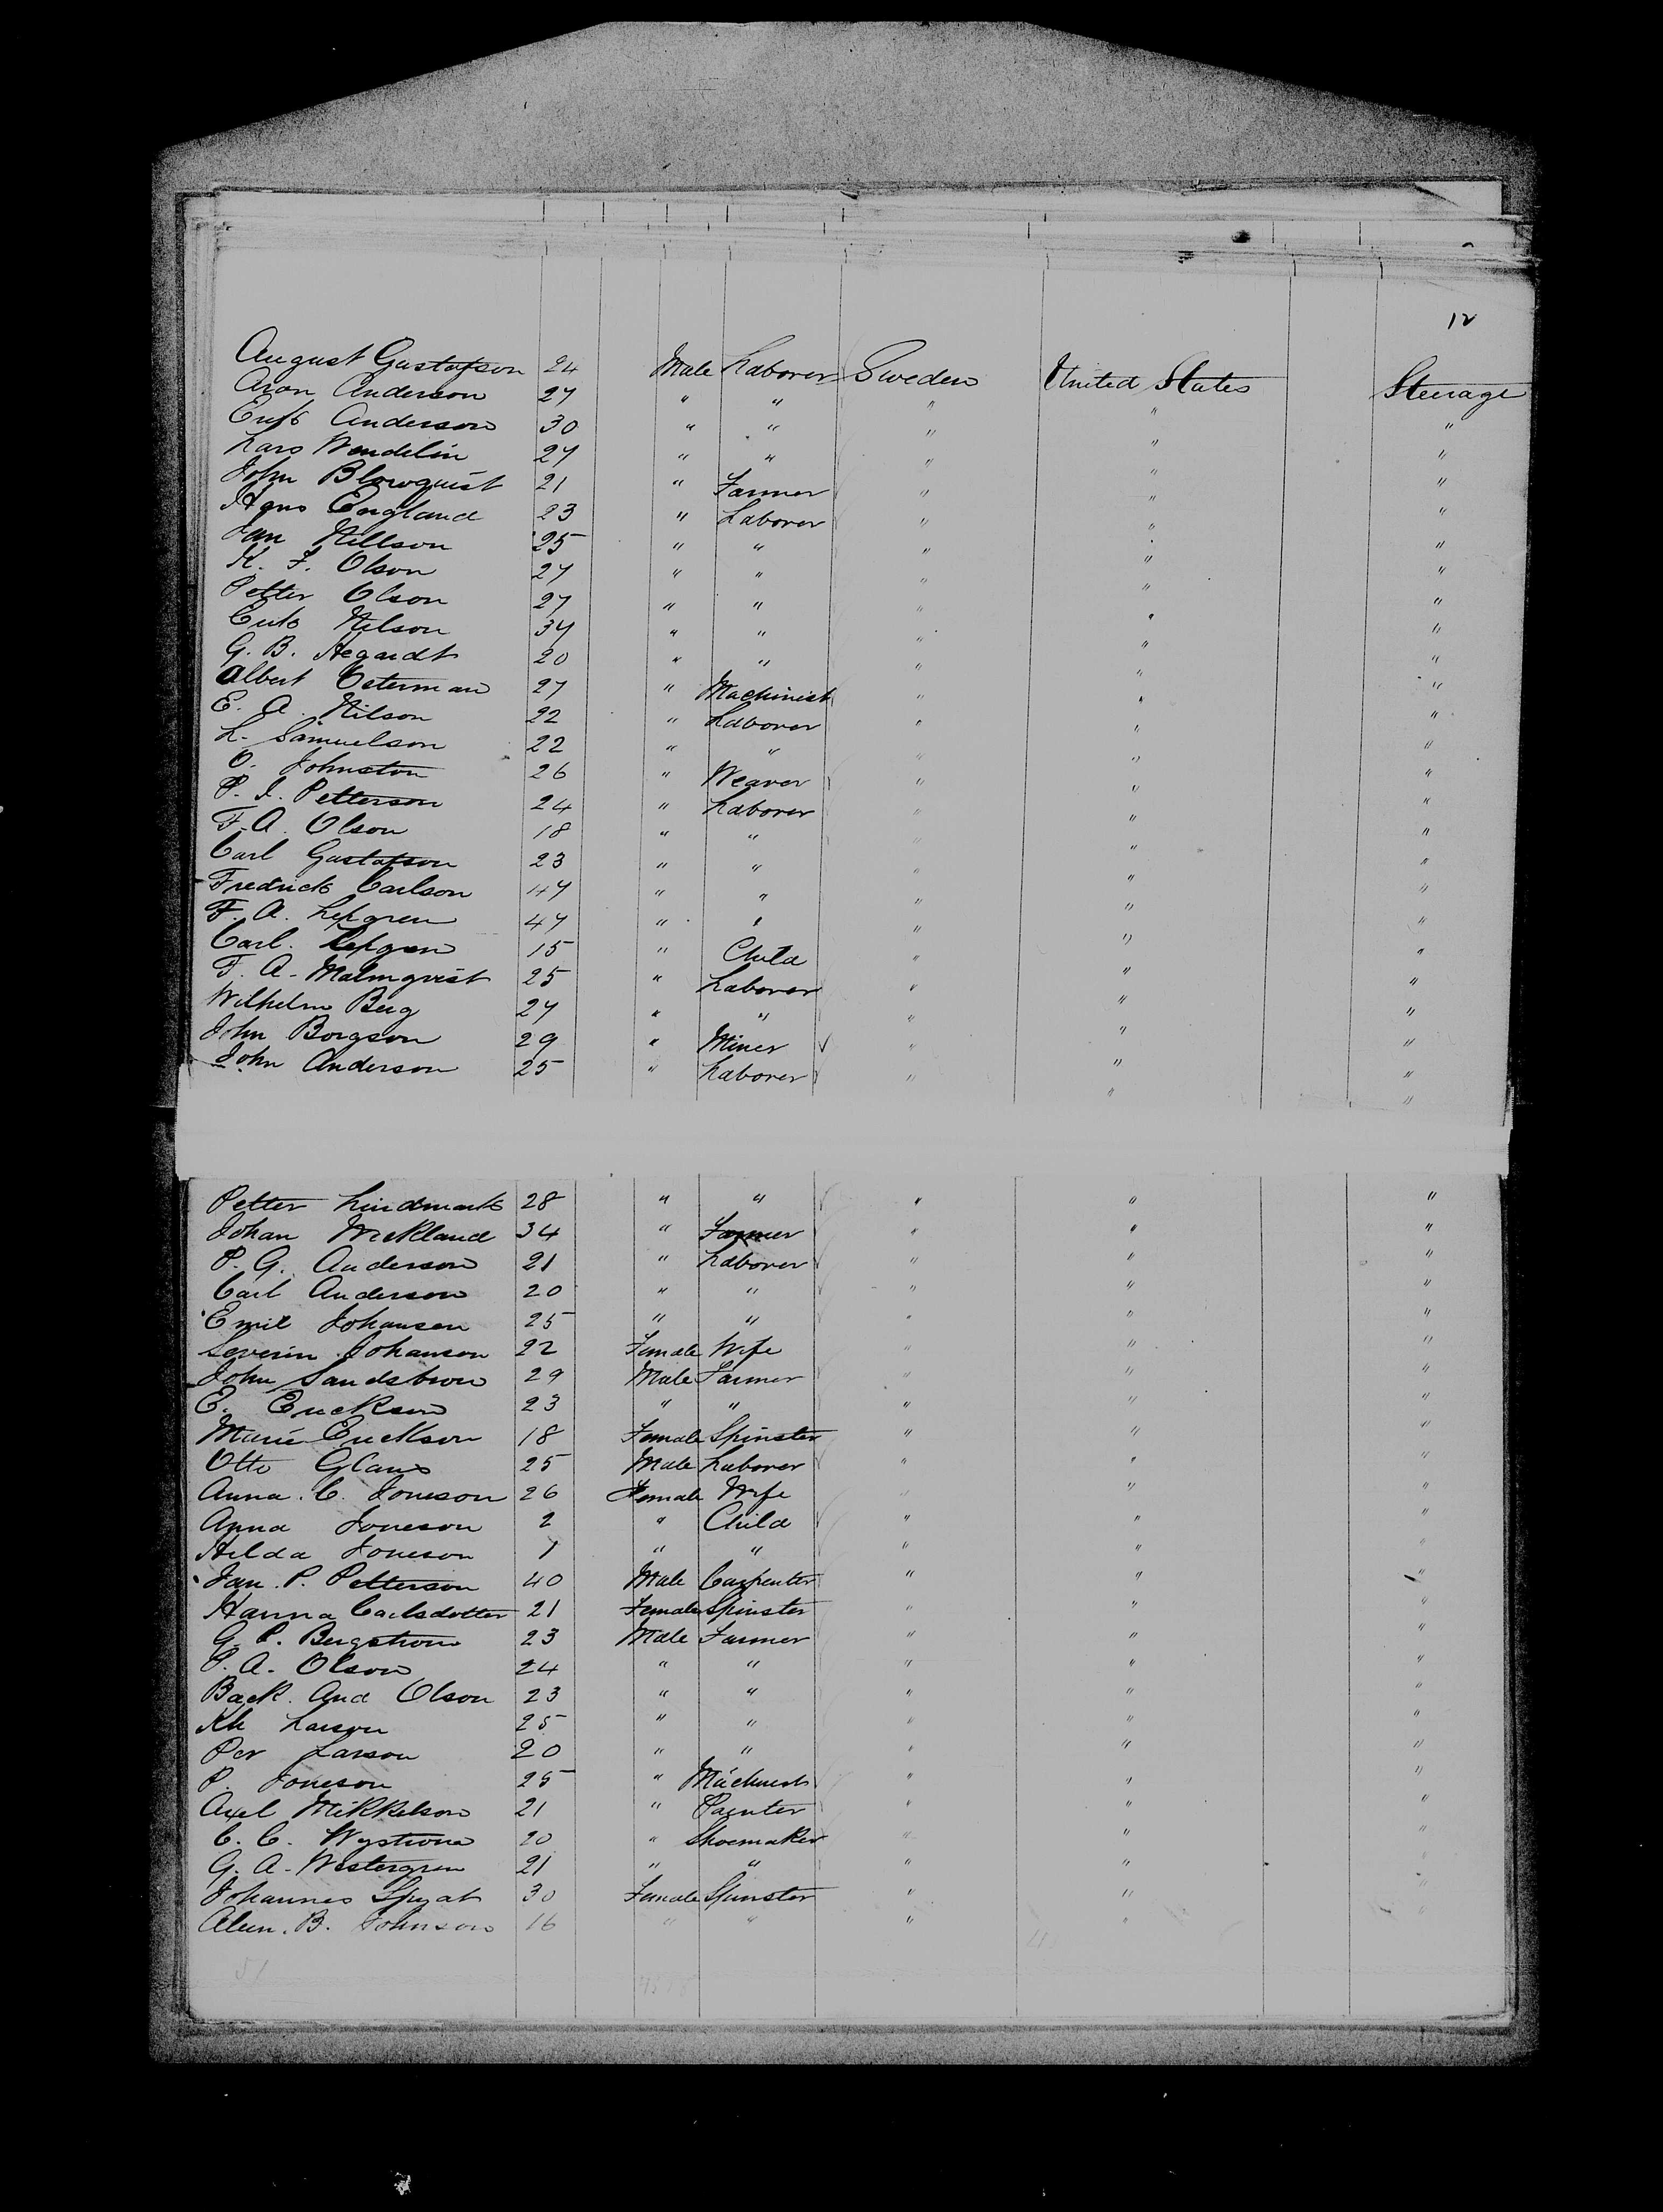 12
August Gustafson 24 Male Laborer Sweden United States Steerage
Aron Anderson 27 " " " " "
Erik Anderson 30 " " " " "
Lars Wendelin 27 " " " " "
John Blowquist 21 " Farmer " " "
England 23 " Laborer " " "
Jan Nillson 25 " " " " "
K. F. Olson 27 " " " " "
Petter Olson 27 " " " " "
Erik Nilson 37 " " " " "
G. B. Hegardt 20 " " " " "
Albert Osterman 27 " Machinist " " "
E. A. Nilson 22 " Laborer " " "
L. Samuelson 22 " " " " "
O. Johnston 26 " Weaver " " "
P. J. Petterson 24 " Laborer " " "
F. A. Olson 18 " " " " "
Carl Gustafson 23 " " " " "
Fredrick Carlson 47 " " " " "
F. A. 47 " " " " "
Carl 15 " Child " " "
F. A. Malmqvist 25 " Laborer " " "
Wilhelm Berg 27 " " " " "
John Borgson 29 " Miner " " "
John Anderson 25 " Laborer " " "
Petter Lindmark 28 " " " " "
Johan Wickland 34 " Farmer " " "
P. G. Anderson 21 " Laborer " " "
Carl Anderson 20 " " " " "
Emil Johansen 25 " " " " "
Severin Johanson 22 Female Wife " " "
John Sandstrom 29 Male Farmer " " "
E. Erickson 23 " " " " "
Marie Erickson 18 Female Spinster " " "
Otto Glans 25 Male Laborer " " "
Anna C. Joneson 26 Female Wife " " "
Anna Joneson 2 " Child " " "
Hilda Joneson 1 " " " " "
Jan. P. Petterson 40 Male Carpenter " " "
Hanna Carlsdotter 21 Female Spinster " " "
G. P. Bergstrom 23 Male Farmer " " "
P. A. Olson 24 " " " " "
Back. And Olson 23 " " " " "
Larson 25 " " " " "
Per Larson 20 " " " " "
P. Joneson 25 " Machinist " " "
Axel Mikkelson 21 " Painter " " "
C. C. Wystrom 20 " Shoemaker " " "
G. A. Westergren 21 " " " " "
Johannes 30 Female Spinster " " "
B. Johnson 16 " " " " "
51